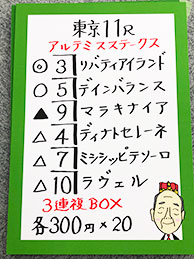 東京11R
アルテミスステークス
◎ 3 リバティアイランド
○ 5 デインバランス
▲ 9 マラキナイア
△ 4 ディナトセレーネ
△ 7 ミシシッピテソーロ
△ 10 ラヴェル
3連複BOX
各300円×20